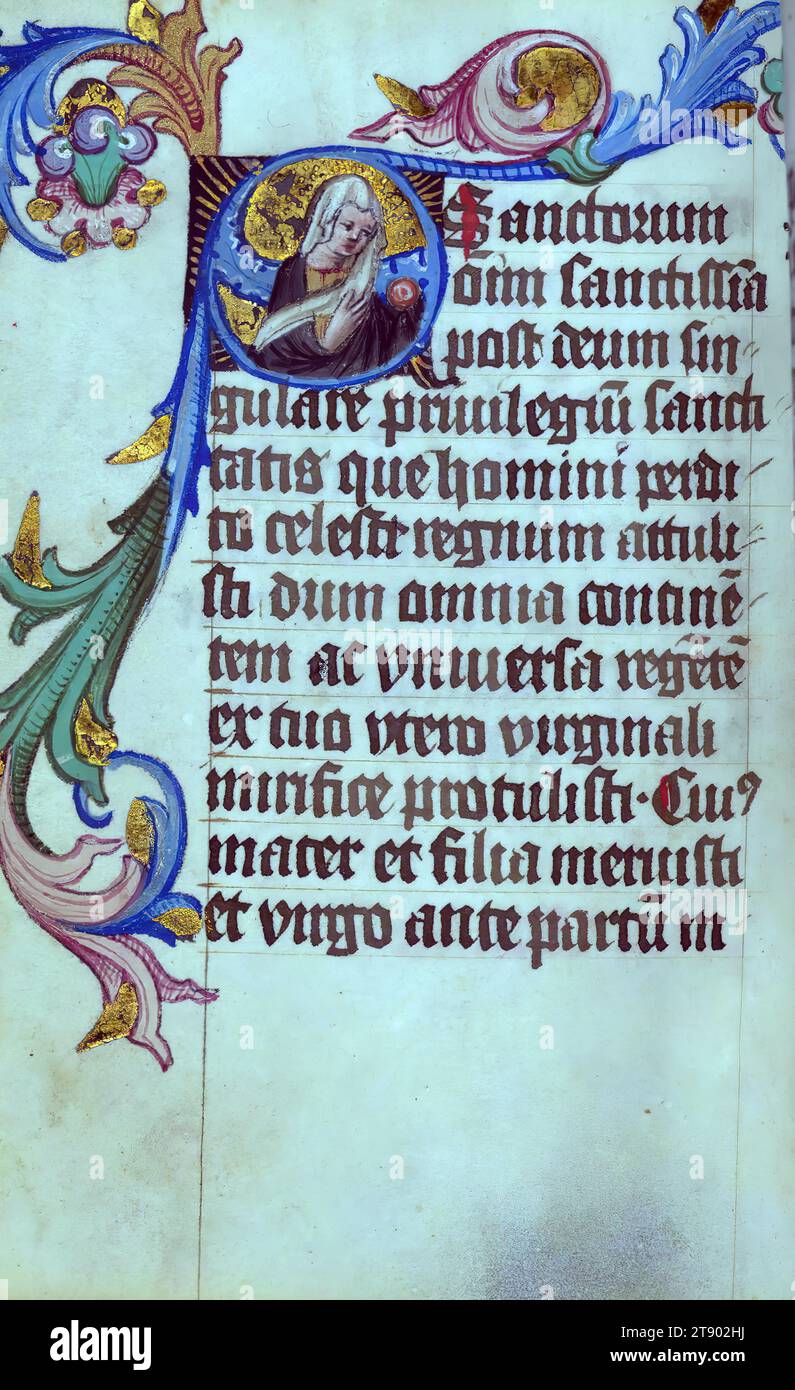 O Sanctorum
om̄i sanctissīa
post deum sin
gulare priuilegiū sancti
tatis que homini perdi
to celeste regnum attuli
sti dum omnia continē
tem ac vniuersa regētē
ex tuo vtero virginali
mirifice protulisti · Cuiꝰ
mater et filia meruisti
et virgo ante partū in
alamy
Image ID: 2T902HJ
www.alamy.com